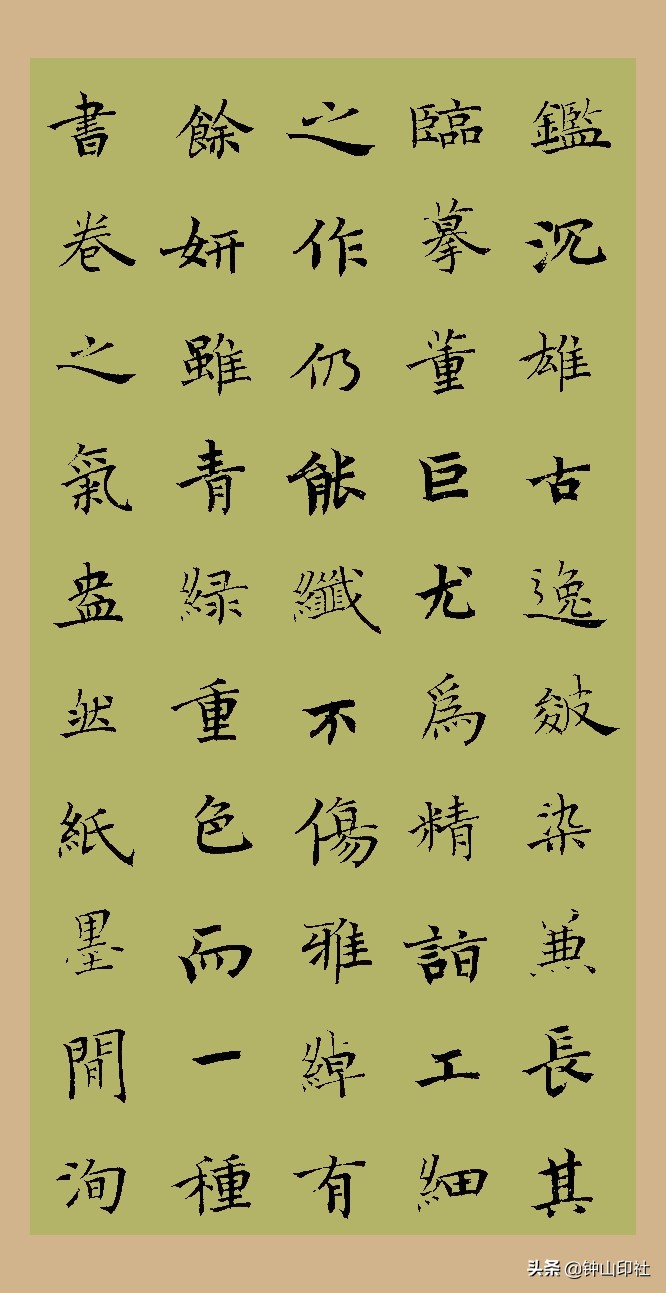 鑑沉雄古逸皴染兼長其
臨摹董巨尤爲精詣工細
之作仍能纖不傷雅綽有
餘妍雖青緑重色而一種
書卷之氣盎然紙墨間洵
头条 @钟山印社